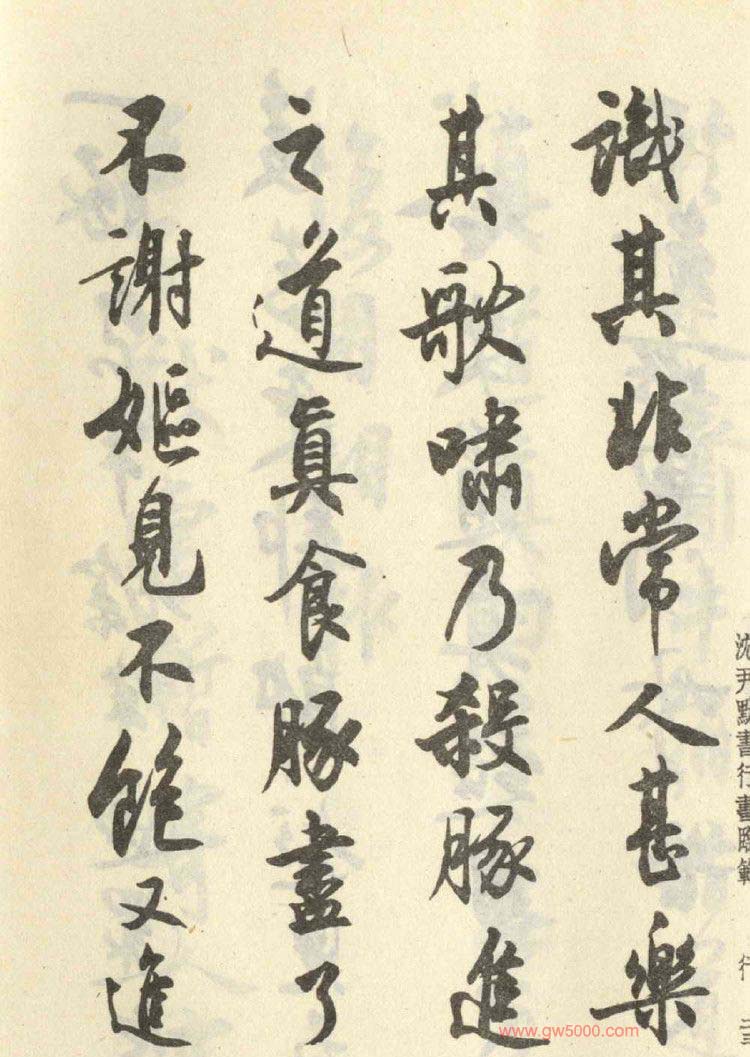 沈尹默書行書臨範 行
識其非常人甚樂
其歌嘯乃殺豚進
之道真食豚盡了
不謝嫗見不飽又進
www.gw5000.com